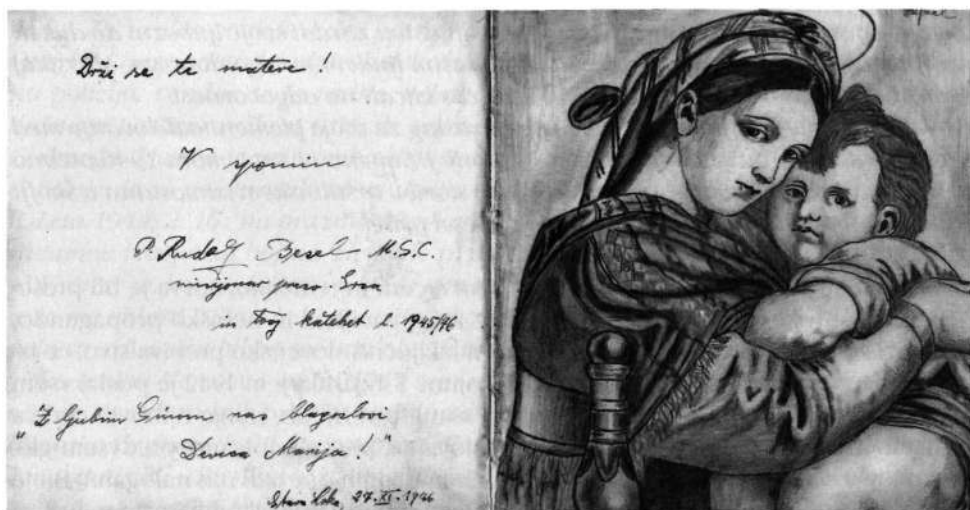 Drži se te matere!
V spomin
P. Rudolf Besel M.S.C.
misijonar Srca
in tvoj katehet l. 1945/46
"Z ljubim Sinom nas blagoslovi
Devica Marija!"
Stara Loka, 27. XI. 1946